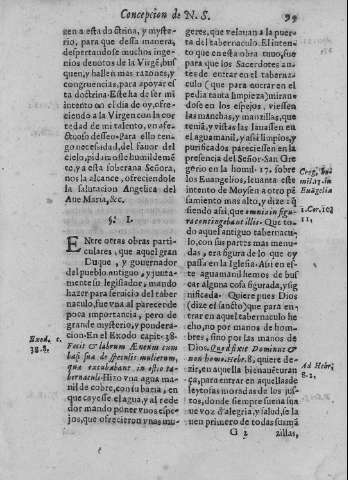 Concepcion de N. S. 99
gen a esta doctrina, y myste-
rio, para que dessa manera,
despertandose muchos inge-
nios deuotos de la Virgẽ, bus
quen, y hallen mas razones, y
congruencias, para apoyar es
ta doctrina. Esta ha de ser mi
intento en el dia de oy, ofre-
ciendo a la Virgen con la cor
tedad de mi talento, mi afec-
tuoso desseo. Para ello ten-
go necessidad, del fauor del
cielo, pidamosle humildemẽ
te, y a esta soberana Señora,
nos la alcance, ofreciendole
la salutacion Angelica del
Aue Maria, &c.
§. I.
ENtre otras obras parti-
culares, que aquel gran
Duque, y gouernador
del pueblo antiguo, y junta-
mente su legislador, mando
hazer para seruicio del taber
naculo, fue vna al parecer de
poca importancia, pero de
grande mysterio, y pondera-
cion. En el Exodo capit. 38.
Fecit & labrum Æneum cum
basi sua de speculis mulierum,
quæ excubabant in ostio ta-
bernaculi. Hizo vna agua ma
nil de cobre, con su basa, en
que cayesse el agua, y al rede
dor mando poner vnos espe-
jos, que ofrecieron vnas mu-
Exod. c.
38. 8.
geres, que velauan a la puer-
ta del tabernaculo. El inten-
to que en esta obra tuuo, fue
para que los Sacerdotes an-
tes de entrar en el taberna-
culo (que para entrar en el
pedia tanta limpieza) miran-
dose en los espejos, viessen
las manchas, y manzillas, que
teniã, y vistas las lauassen en
el aguamanil, y assi limpios, y
purificados pareciessen en la
presencia del Señor. San Gre
gorio en la homil. 17. sobre
los Euangelios, leuanta este
intento de Moysen a otro pẽ
samiento mas alto, y dize:
siendo assi que omnia in figu-
ra contingebant illis. Que to-
do aquel antiguo tabernacu-
lo, con sus partes mas menu-
das, era figura de lo que oy
passa en la Iglesia. Assi en es-
te aguamanil hemos de bus
car alguna cosa figurada, y sig
nificada. Quiere pues Dios
(dize el sancto) que para en-
trar en aquel tabernaculo he
cho, no por manos de hom-
bres, sino por las manos de
Dios. Quod fixit Dominus &
non homo. Hebr. 8. quiere de-
zir, en aquella bienauẽturan
ça, para entrar en aquellas de
leytosas moradas de los jus-
tos, donde siempre suena sua
ue voz d'alegria, y salud, se la
uen primero de todas sus mã
Greg. ho
mil. 17. in
Euãgelia
1. Cor. 10.
11.
Ad Hebr.
8. 2.
G 2 zillas,